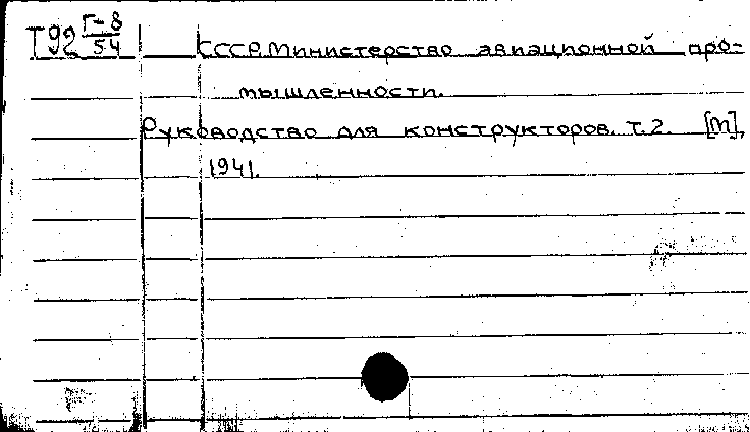 Т92 Г-8/54 СССР. Министерство авиационной про-
мышленности.
Руководство для конструкторов. т.2. [М],
1941.